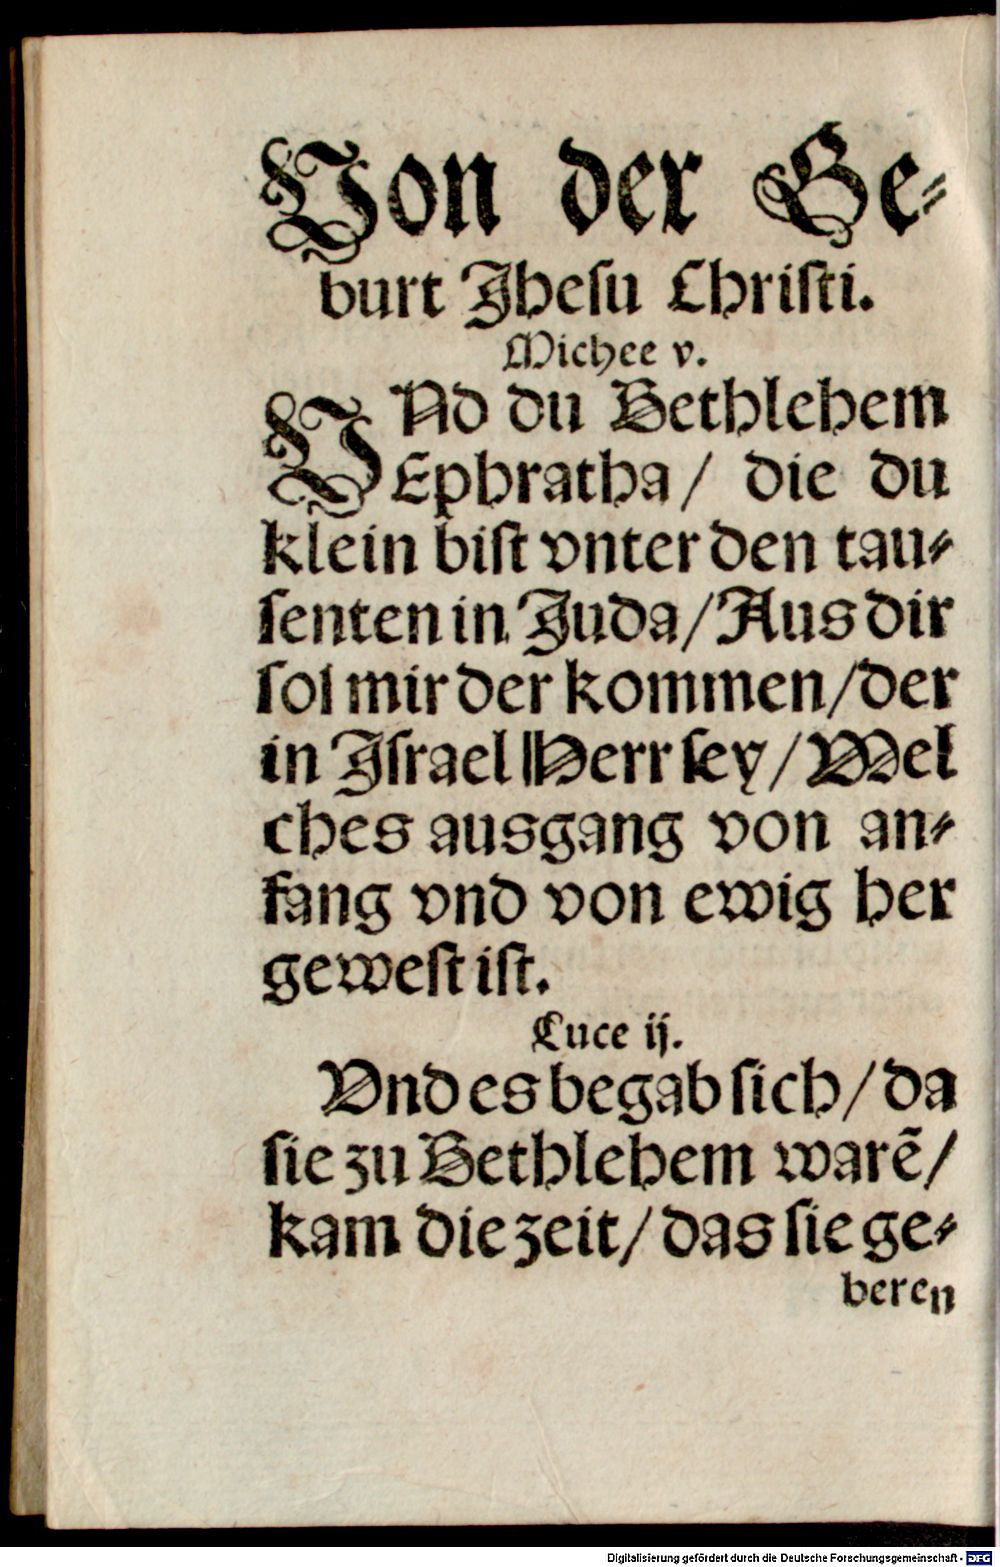 Von der Ge⸗
burt Jheſu Chriſti.
Michee v.
VNd du Bethlehem
Ephratha/ die du
klein biſt vnter den tau⸗
ſenten in Juda/ Aus dir
ſol mir der kommen/ der
in Jſrael Herr ſey/ Wel
ches ausgang von an⸗
fang vnd von ewig her
geweſt iſt.
Luce ij.
Vnd es begab ſich/ da
ſie zu Bethlehem warẽ/
kam die zeit/ das ſie ge⸗
beren
Digitalisierung gefördert durch die Deutsche Forschungsgemeinschaft - DFG